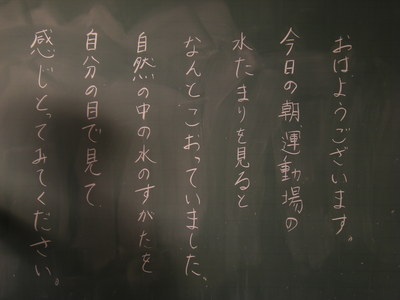 おはようございます。
今日の朝運動場の
水たまりを見ると
なんとこおっていました、
自然の中の水のすがたを
自分の目で見て
感じとってみてください。